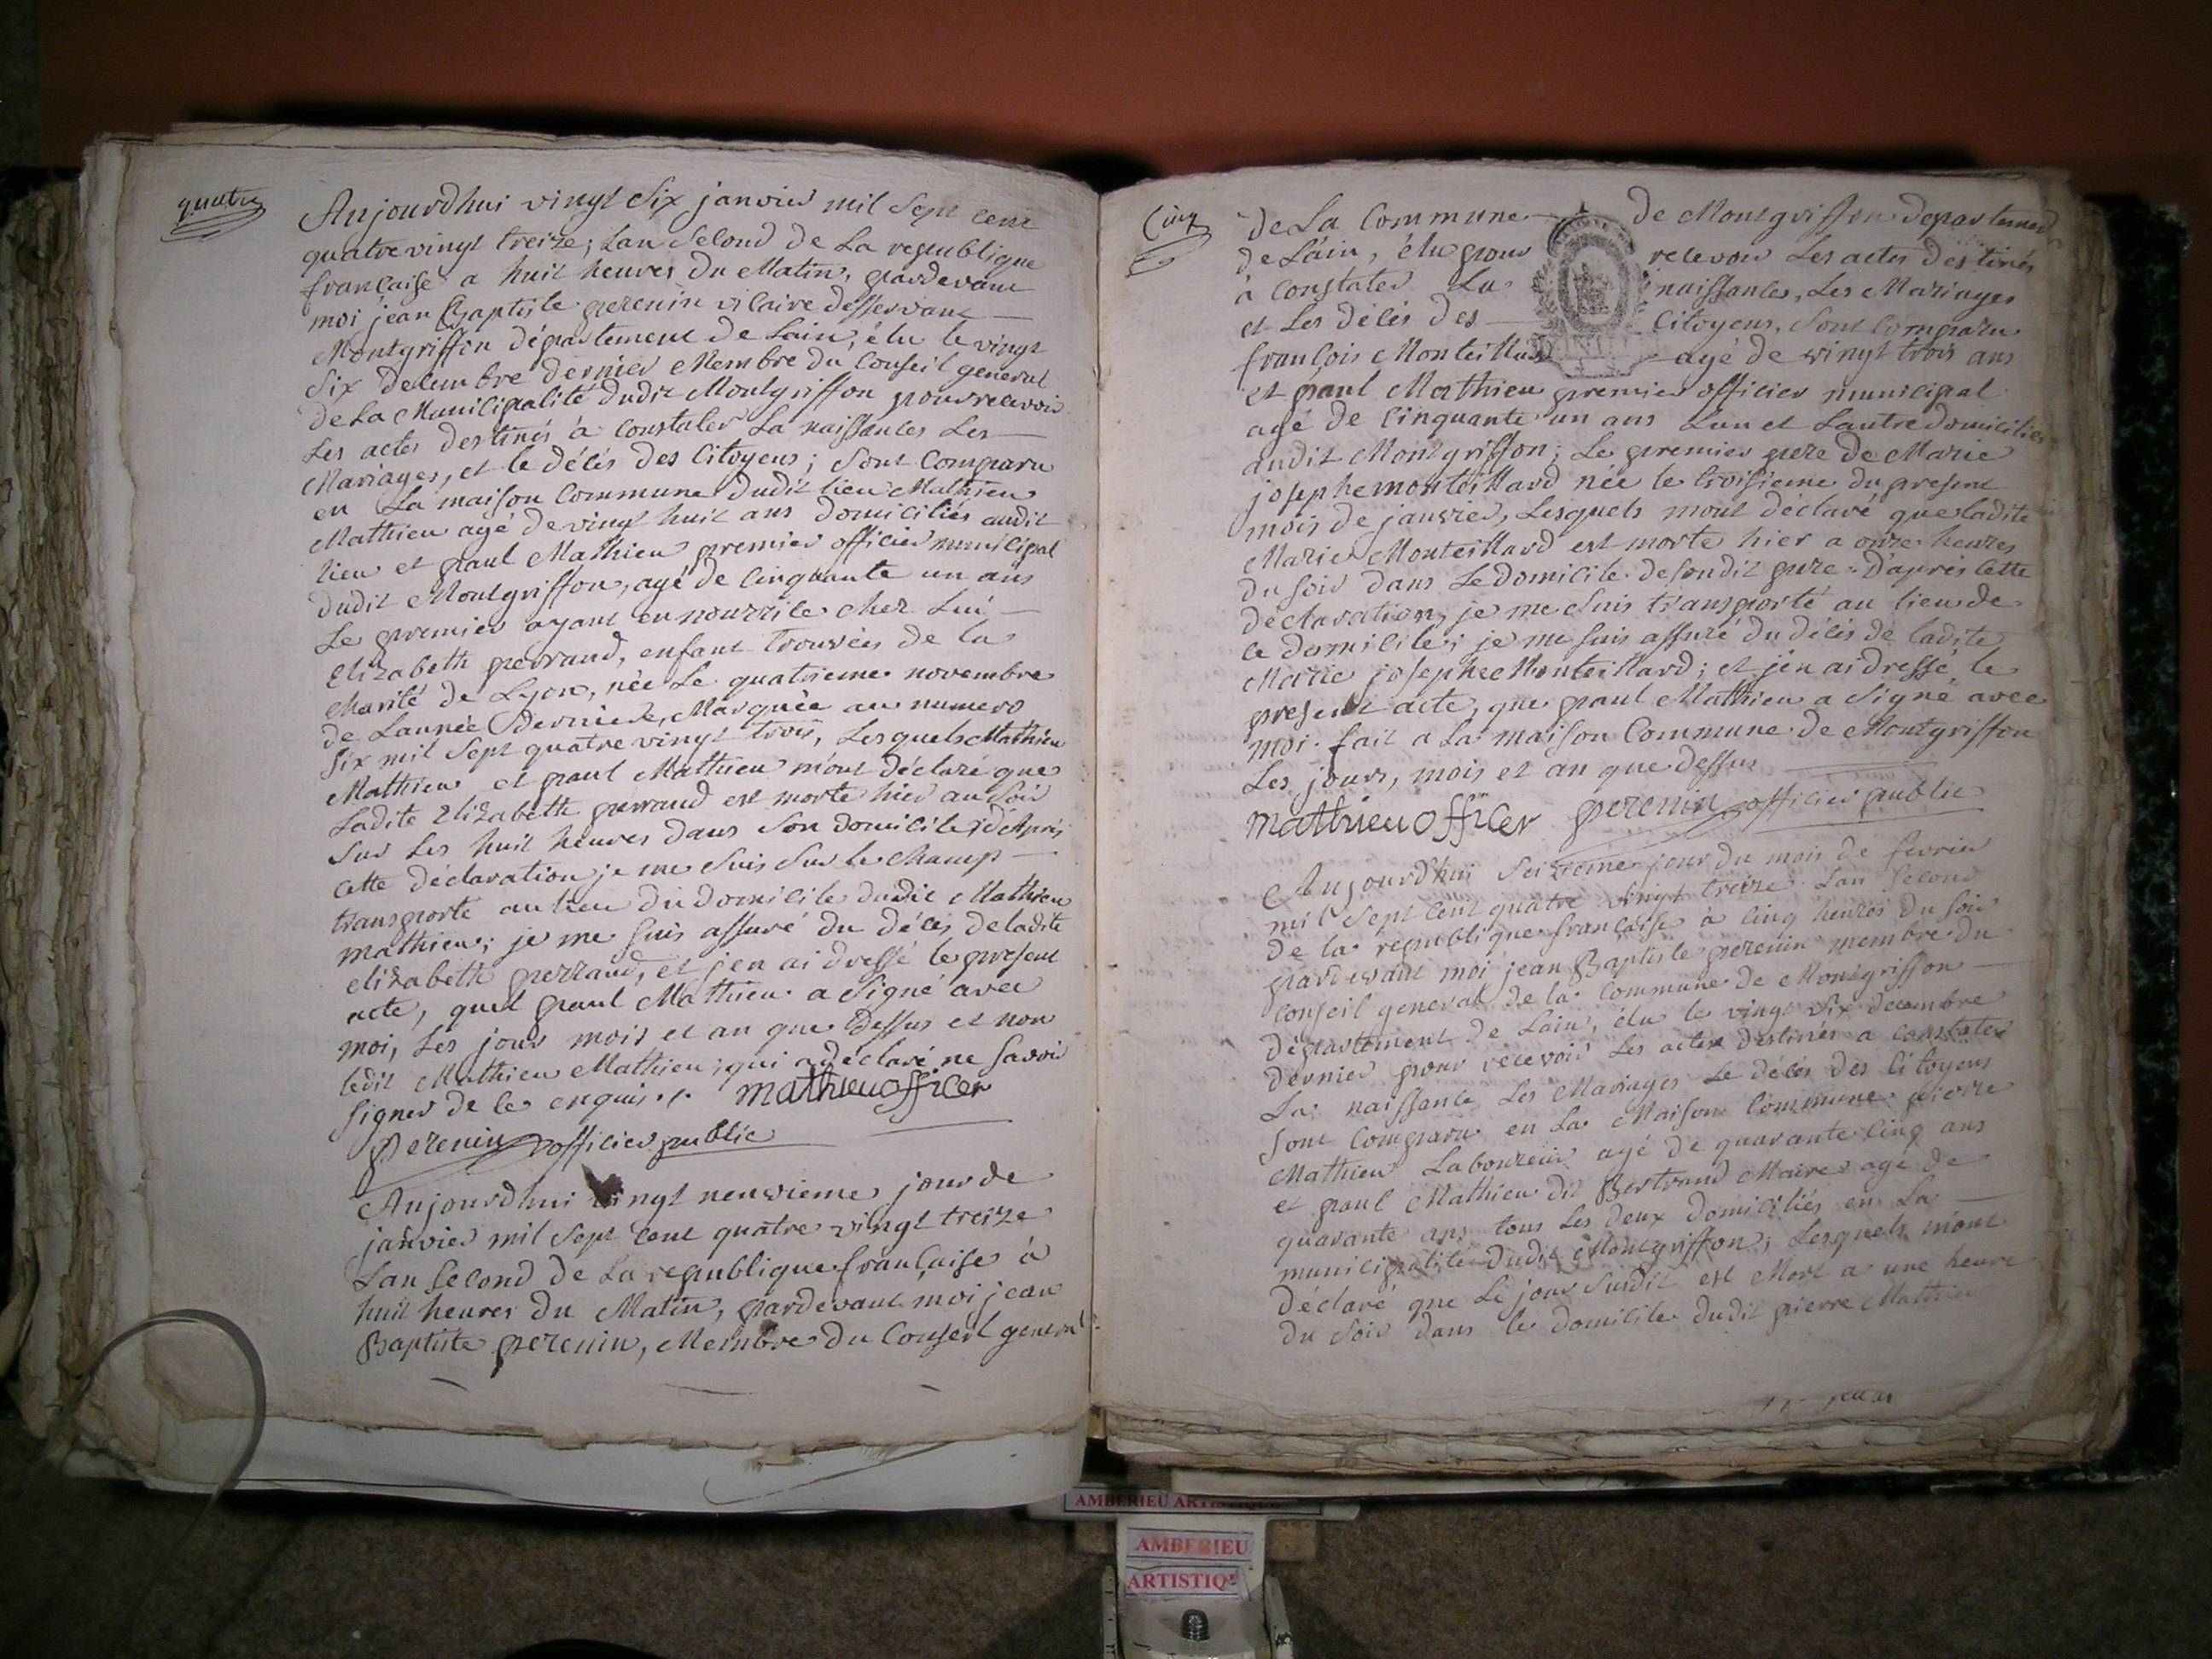 quatre
Aujourdhui vingt Six janvier mil Sept cent
quatre vingt treize; Lan Second de La republique
française a huit heures du Matin, pardevant
moi jean Baptiste perenin vicaire desservant
Montgriffon département de Lain, élu le vingt
Six decembre dernier Membre du Conseil general
de La Municipalité dudit Montgriffon pour recevoir
Les actes destinés à constater La naissances Les
Mariages, et le décés des Citoyens; Sont Comparu
en La maison Commune dudit lieu Mathieu
Mathieu agé de vingt huit ans domiciliés audit
lieu et paul Mathieu premier officier municipal
dudit Montgriffon, agé de Cinquante un ans
Le premier ayant en nourrice chez Lui
Elizabeth perraud, enfant trouvées de la
charité de Lyon, née Le quatrieme novembre
de Lannée derniere, Marquée au numero
Six mil Sept quatre vingt trois, Lesquels Mathieu
Mathieu et paul Mathieu m'ont déclaré que
Ladite Elizabeth perraud est morte hier au Soir
Sur Les huit heures dans Son domicile; d'Après
cette déclaration je me Suis Sur le champ
transporté au lieu du domicile dudit Mathieu
mathieu; je me suis assuré du décés de ladite
elizabeth perraud, et j'en ai dressé le present
acte, quel paul Mathieu a Signé avec
moi, Les jour mois et an que dessus et non
ledit Mathieu Mathieu; qui a déclaré ne Savoir
Signer de ce enquis ./. mathieu officer
perenin officier public
Aujourdhui vingt neuvieme jour de
janvier mil Sept cent quatre vingt treize
Lan Second de La republique française à
huit heures du Matin, pardevant moi jean
Baptiste perenin, Membre du Conseil general
Cinq
de La Commune de Montgriffon departement
de Lain, élu pour recevoir Les actes destinés
à constater La naissances, Les Mariages
et Les décés des Citoyens, Sont Comparu
françois Monteillard agé de vingt trois ans
et paul Mathieu premier officier municipal
agé de Cinquante un ans Lun et Lautre domiciliés
audit Montgriffon; Le premier pere de Marie
josephe monteillard née le troisieme du present
mois de janvier, Lesquels m'ont déclaré que ladite
Marie Monteillard est morte hier a onze heures
du soir dans Le domicile de sondit pere. D'après cette
déclaration, je me Suis transporté au lieu de
ce domicile; je me suis assuré du décés de ladite
Marie josephe Monteillard; et j'en ai dressé le
present acte, que paul Mathieu a Signé avec
moi. fait a La maison Commune de Montgriffon
Les jours, mois et an que dessus
mathieu officer perenin officier public
Aujourdhui Seizieme jour du mois de fevrier
mil Sept Cent quatre vingt treize Lan Second
de la republique française à cinq heures du soir
pardevant moi jean Baptiste perenin membre du
Conseil general de la Commune de Montgriffon
département de Lain, élu le vingt Six decembre
dernier pour recevoir Les actes destinés a constater
La naissance Les Mariages Le décés des Citoyens
Sont Comparu en La Maison Commune pierre
Mathieu Laboureur agé de quarante cinq ans
et paul Mathieu dit Bertrand Maire agé de
quarante ans tous Les deux domiciliés en La
municipalité dudit Montgriffon; Lesquels m'ont
déclaré que Le jour Susdit est Mort a une heure
du soir dans le domicile dudit pierre Mathieu
AMBERIEU ARTISTIQUE
AMBERIEU
ARTISTIQ